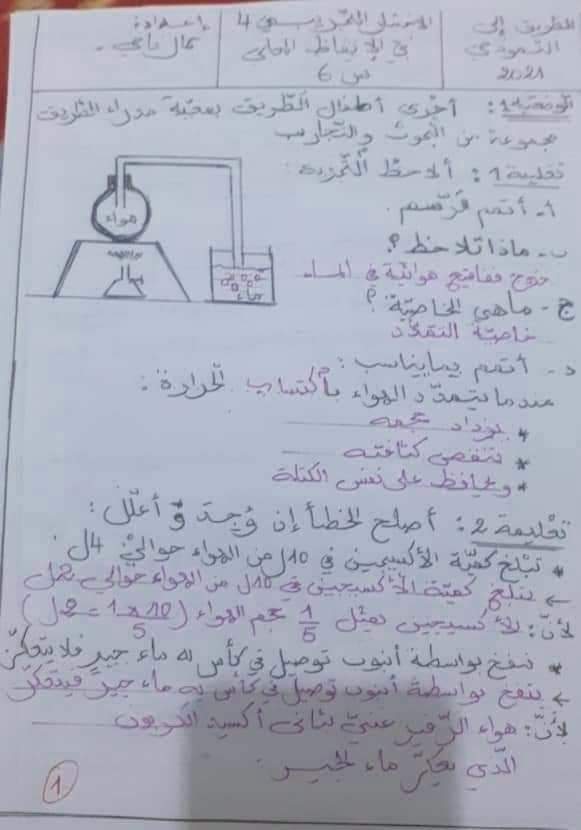 الطريق إلى
النموذجي
2021
الامتحان التجريبي 4
في الإيقاظ العلمي
س 6
إعداد
كمال
الوضعية 1: أجرى أطفال الطّريق بصحبة مدرّاء الطّريق
مجموعة من البحوث والتّجارب
تعليمة 1: ألاحظ التّجربة:
أ- أتمّم الرّسم.
هواء
ماء
ب- ماذا تلاحظ؟
خروج فقاقيع هوائية في الماء
ج- ماهي الخاصيّة؟
خاصيّة التمدّد
د- أتمّم بما يناسب:
عندما يتمدّد الهواء بأكتساب الحرارة:
* يزداد حجمه
* تنقص كثافته
* ويحافظ على نفس الكتلة
تعليمة 2: أصلح الخطأ إن وُجد وأعلّل:
* تبلغ كميّة الأكسيجين في 10ل من الهواء حوالي 4ل.
← تبلغ كميّة الأكسيجين في 10ل من الهواء حوالي 2ل
لأنّ: الأكسيجين يمثّل 1/5 حجم الهواء (10×1/5 = 2ل)
* ننفخ بواسطة أنبوب توصيل في كأس به ماء جير فلا يتعكّر
← ننفخ بواسطة أنبوب توصيل في كأس به ماء جير فيتعكّر
لأنّ: هواء الزّفير غنيّ بثاني أكسيد الكربون
الّذي يعكّر ماء الجير.
1